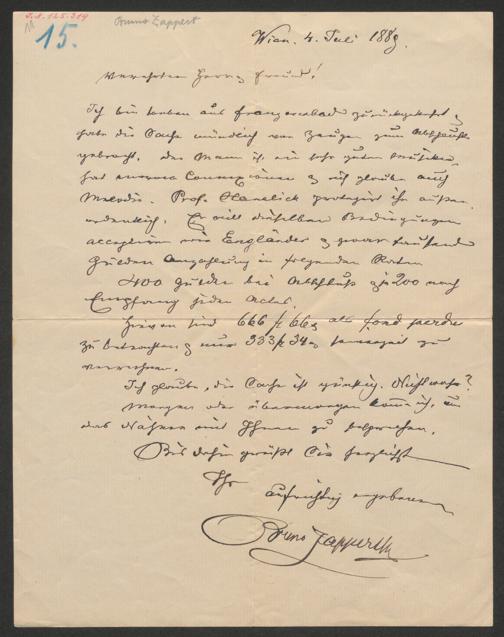 I.N. 125.319
Bruno Zappert
15.
Wien. 4. Juli 1889.
Verehrter Herr & Freund!
Ich bin soeben aus Franzensbad zurückgekehrt &
habe die Sache mündlich vor Zeugen zum Abschluß
gebracht. Der Mann ist ein sehr guter Musiker,
hat enorme Connexionen & ich glaube auch
Melodie. Prof. Hanslick protegirt ihn außer-
ordentlich. Er will dieselben Bedingungen
acceptiren wie Engländer & zwar tausend
Gulden Anzahlung in folgenden Raten
400 Gulden bei Abschluß & je 200 nach
Empfang jeden Actes.
Hievon sind 666 f 66 als fond perdu
zu betrachten & nur 333 f 34 zu
verrechnen.
Ich glaube, die Sache ist günstig. Nicht wahr?
Morgen oder übermorgen komme ich, um
das Nähere mit Ihnen zu besprechen.
Bis dahin grüßt Sie herzlichst
Ihr
aufrichtig ergebener
Bruno Zappert